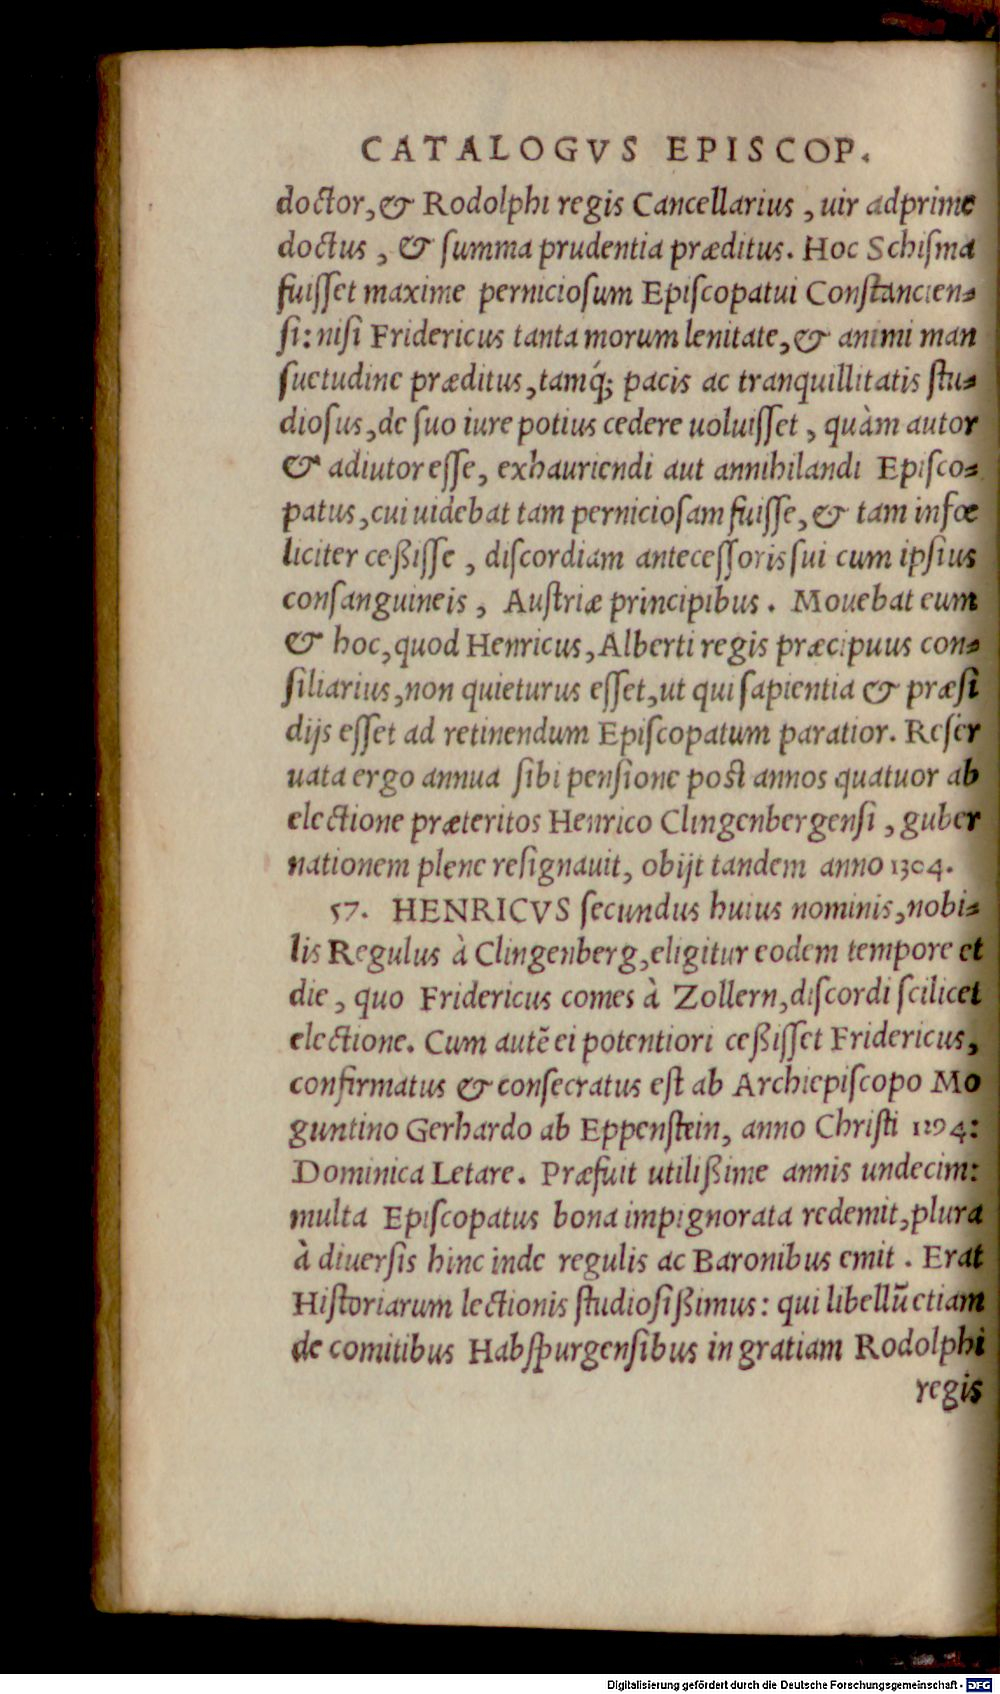 CATALOGVS EPISCOP.
doctor, & Rodolphi regis Cancellarius, uir adprime
doctus, & ſumma prudentia præditus. Hoc Schiſma
fuiſſet maxime pernicioſum Epiſcopatui Conſtancien-
ſi: niſi Fridericus tanta morum lenitate, & animi man
ſuetudine præditus, tamq́; pacis ac tranquillitatis ſtu-
dioſus, de ſuo iure potius cedere uoluiſſet, quàm autor
& adiutor eſſe, exhauriendi aut annihilandi Epiſco-
patus, cui uidebat tam pernicioſam fuiſſe, & tam infœ
liciter ceßiſſe, diſcordiam anteceſſoris ſui cum ipſius
conſanguineis, Auſtriæ principibus. Mouebat eum
& hoc, quod Henricus, Alberti regis præcipuus con-
ſiliarius, non quieturus eſſet, ut qui ſapientia & præſi
dijs eſſet ad retinendum Epiſcopatum paratior. Reſer
uata ergo annua ſibi penſione poſt annos quatuor ab
electione præteritos Henrico Clingenbergenſi, guber
nationem plene reſignauit, obijt tandem anno 1304.
57. HENRICVS ſecundus huius nominis, nobi-
lis Regulus à Clingenberg, eligitur eodem tempore et
die, quo Fridericus comes à Zollern, diſcordi ſcilicet
electione. Cum autẽ ei potentiori ceßiſſet Fridericus,
confirmatus & conſecratus eſt ab Archiepiſcopo Mo
guntino Gerhardo ab Eppenſtein, anno Chriſti 1294:
Dominica Letare. Præfuit utilißime annis undecim:
multa Epiſcopatus bona impignorata redemit, plura
à diuerſis hinc inde regulis ac Baronibus emit. Erat
Hiſtoriarum lectionis ſtudioſißimus: qui libellũ etiam
de comitibus Habſpurgenſibus in gratiam Rodolphi
regis
Digitalisierung gefördert durch die Deutsche Forschungsgemeinschaft - DFG